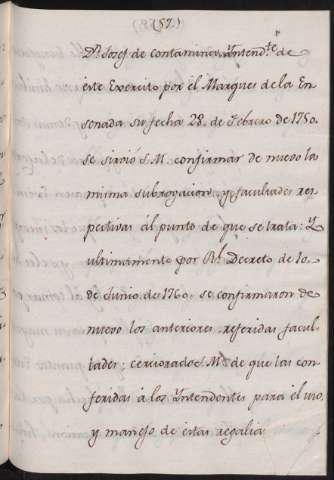 (57.)
Dn. Josef de Contamina, Yntendte. de
este Exercito por el Marques de la En
senada su fecha 28. de Febrero de 1750.
se sirvió S.M. confirmar de nuevo la
misma subrogacion, y facultades res
pectivas ál punto de que se trata: Y
ultimamente por Rl. Decreto de 10.
de Junio de 1760. se confirmaron de
nuevo las anteriores referidas facul
tades; cerciorado S. Md. de que las con
feridas á los Yntendentes para el uso,
y manejo de estas regalia